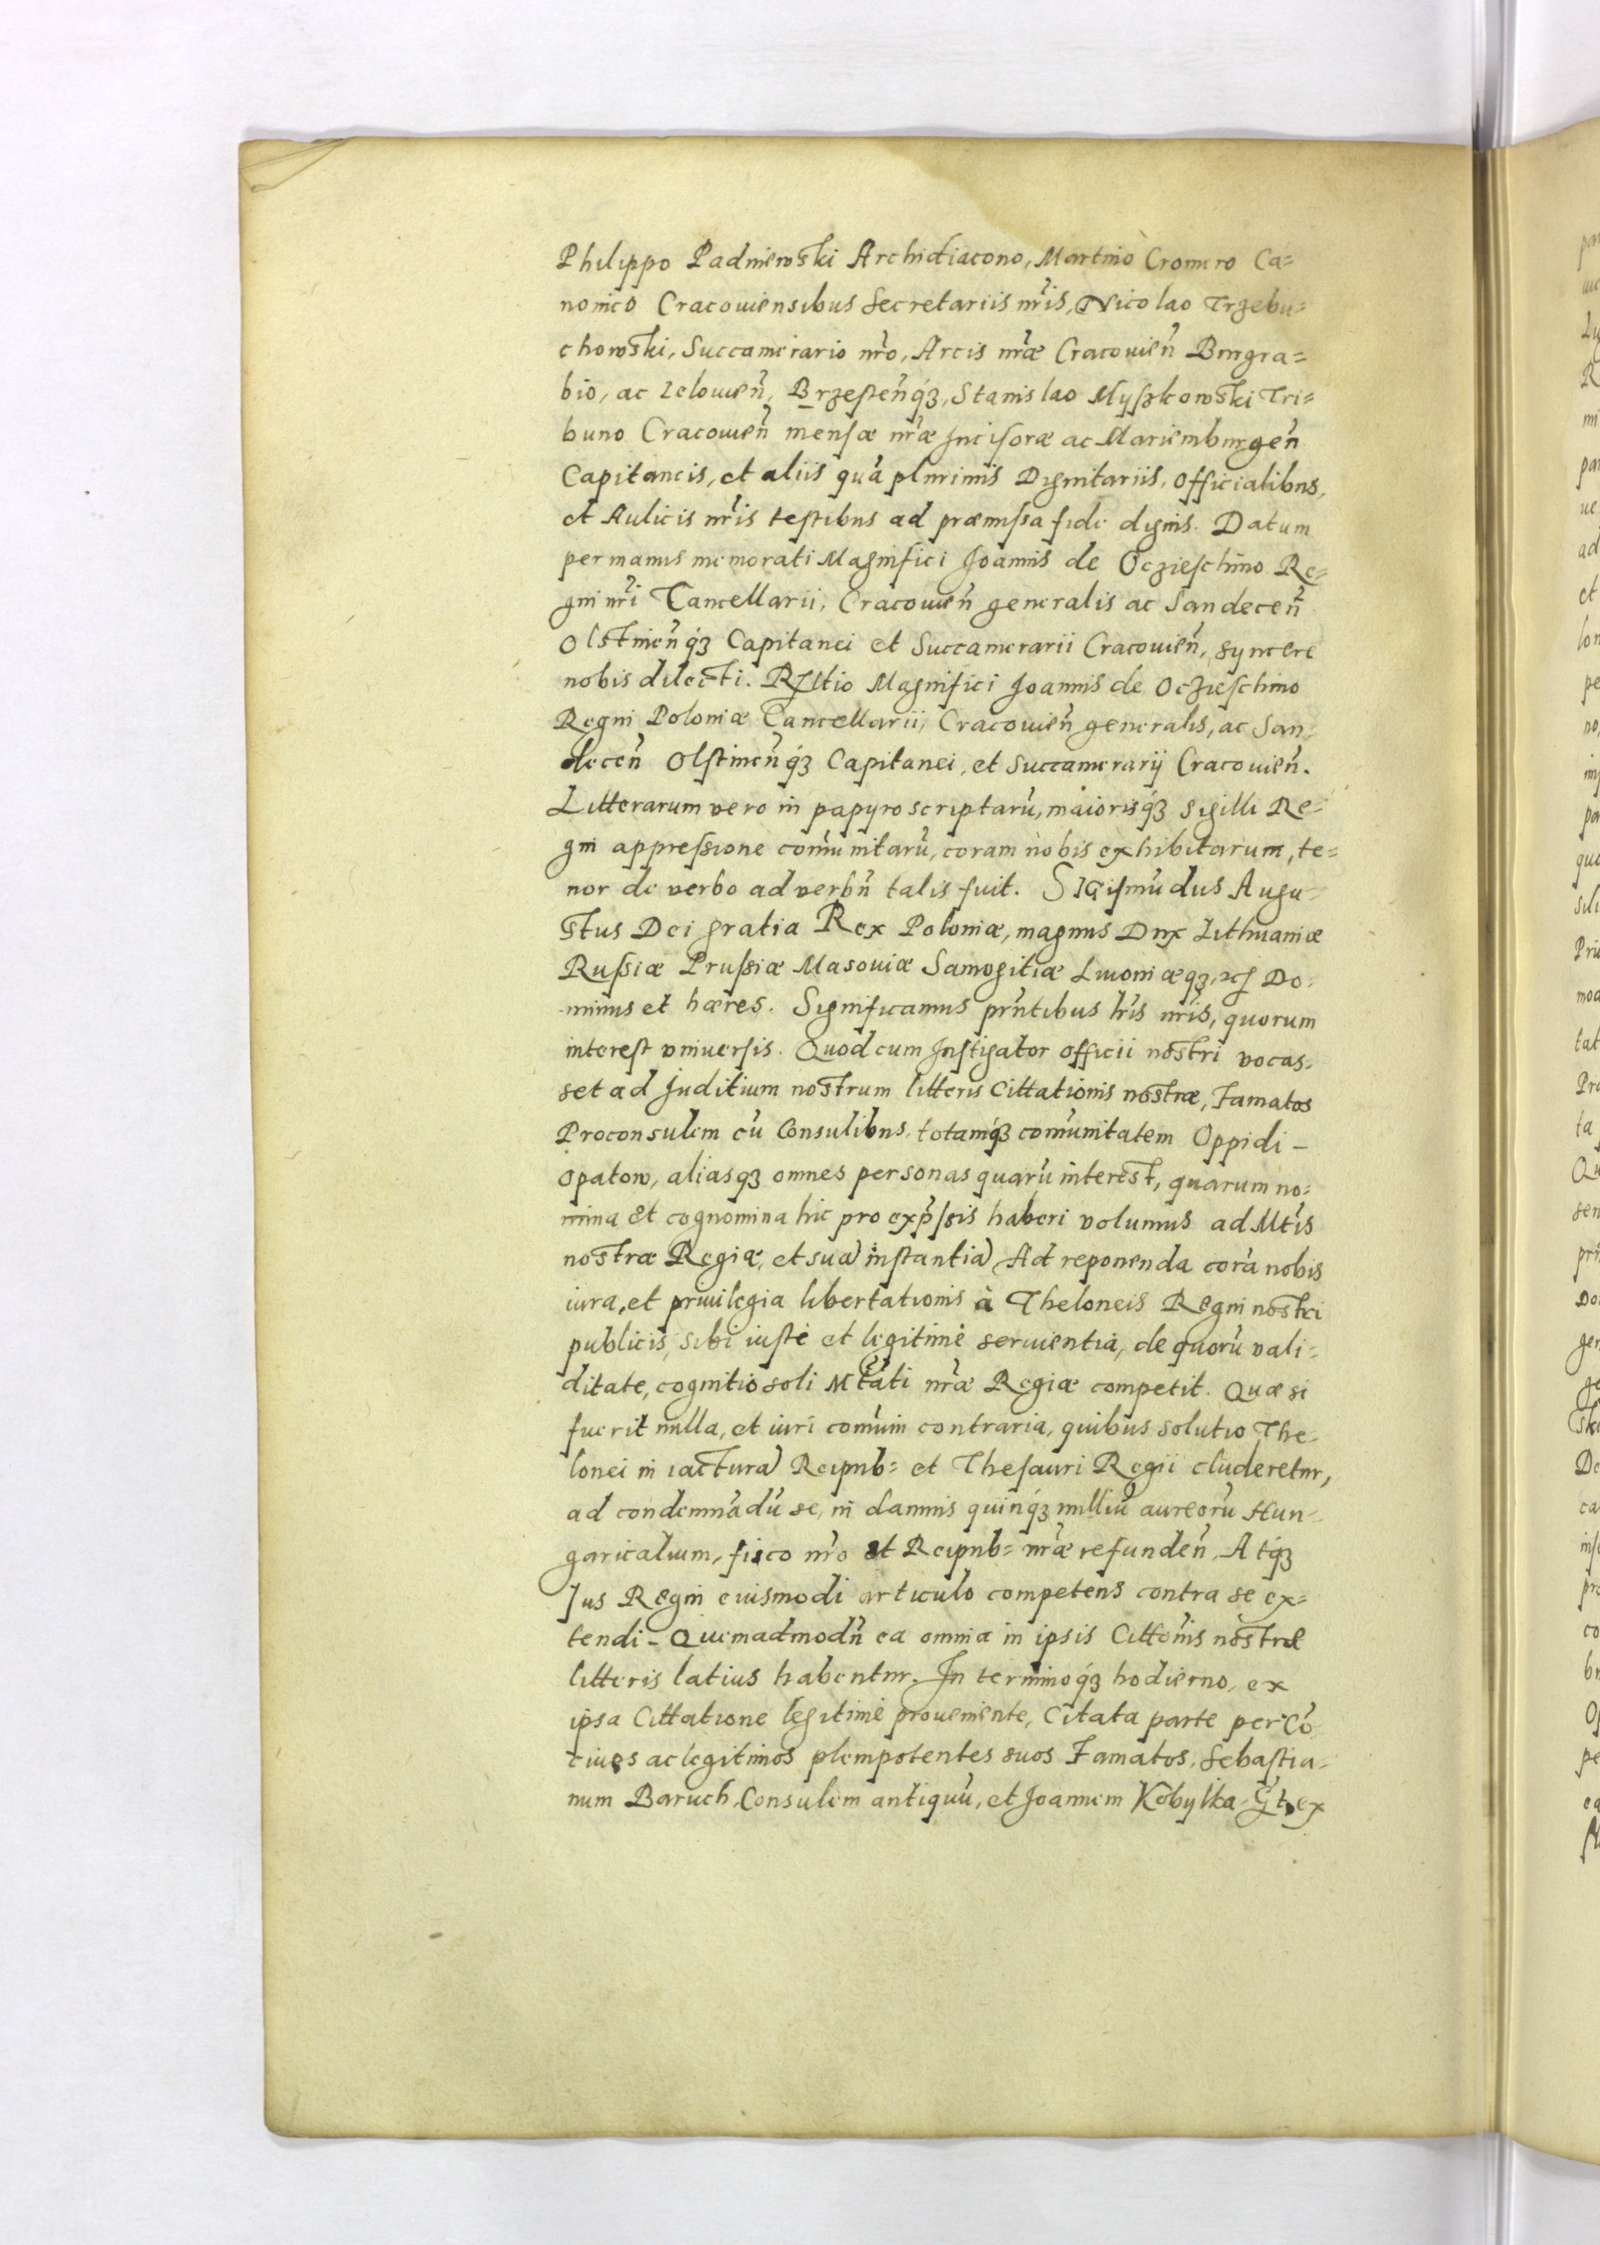 Philippo Padniewski Archidiacono, Martino Cromero Ca=
nonico Cracouiensibus Secretariis nr̃is, Nicolao Trzebu=
chowski, Succamerario nr̃o, Arcis nr̃æ Cracouieñ Burgra=
bio, ac Zelouieñ, Brzesteñq́ꝫ, Stanislao Myszkowski Tri=
buno Cracouieñ mensæ nr̃æ Incisoræ ac Mariemburgeñ
Capitaneis, et aliis quã plurimis Dignitariis, Officialibus,
et Aulicis nr̃is testibus ad præmissa fide dignis. Datum
per manus memorati Magnifici Joannis de Oczieschino Re=
gni nr̃i Cancellarii, Cracouieñ generalis ac Sandeceñ
Olstineñq́ꝫ Capitanei et Succamerarii Cracouieñ, syncere
nobis dilecti. Rl̃tio Magnifici Joannis de Oczieschino
Regni Poloniæ Cancellarii, Cracouieñ generalis, ac San=
deceñ Olstineñq́ꝫ Capitanei, et Succamerarij Cracouieñ.
Litterarum vero in papyro scriptarũ, maiorisq́ꝫ Sigilli Re=
gni appressione com̃unitarũ, coram nobis exhibitarum, te=
nor de verbo ad verbũ talis fuit. SIGismũdus Augu=
stus Dei gratia Rex Poloniæ, magnus Dux Lithuaniæ
Russiæ Prussiæ Masouiæ Samogitiæ Liuoniæqꝫ, ꝛcꝭ Do=
minus et hæres. Significamus prñtibus lr̃is nr̃is, quorum
interest vniuersis. Quod cum Instigator officii nostri vocas=
set ad Juditium nostrum litteris Cittationis nostræ, Famatos
Proconsulem cũ Consulibus, totamq́ꝫ com̃unitatem Oppidi -
Opatow, aliasqꝫ omnes personas quarũ interest, quarum no=
mina et cognomina hic pro exp̃ssis haberi volumus ad Mt̃is
nostræ Regiæ, et sua instantia Ad reponenda corã nobis
iura, et priuilegia libertationis à Theloneis Regni nostri
publicis, sibi iustè et legitimè seruientia, de quorũ vali=
ditate, cognitio soli Mt̃ati nr̃æ Regiæ competit. Quæ si
fuerit nulla, et iuri com̃uni contraria, quibus solutio The=
lonei in iactura Reipub= et Thesauri Regii eluderetur,
ad condemnãdũ se, in damnis quinq́ꝫ milliũ aureorũ Hun=
garicalium, fisco nr̃o et Reipub= nr̃æ refundeñ, Atq́ꝫ
Jus Regni eiusmodi articulo competens contra se ex=
tendi - Quemadmodũ ea omnia in ipsis Citto͂nis nostræ
litteris latius habentur. In terminoq́ꝫ hodierno, ex
ipsa Cittatione legitimè proueniente, Citata parte per Cõ
ciues ac legitimos plenipotentes suos Famatos, Sebastia=
num Baruch, Consulem antiquũ, et Joannem Kobylka